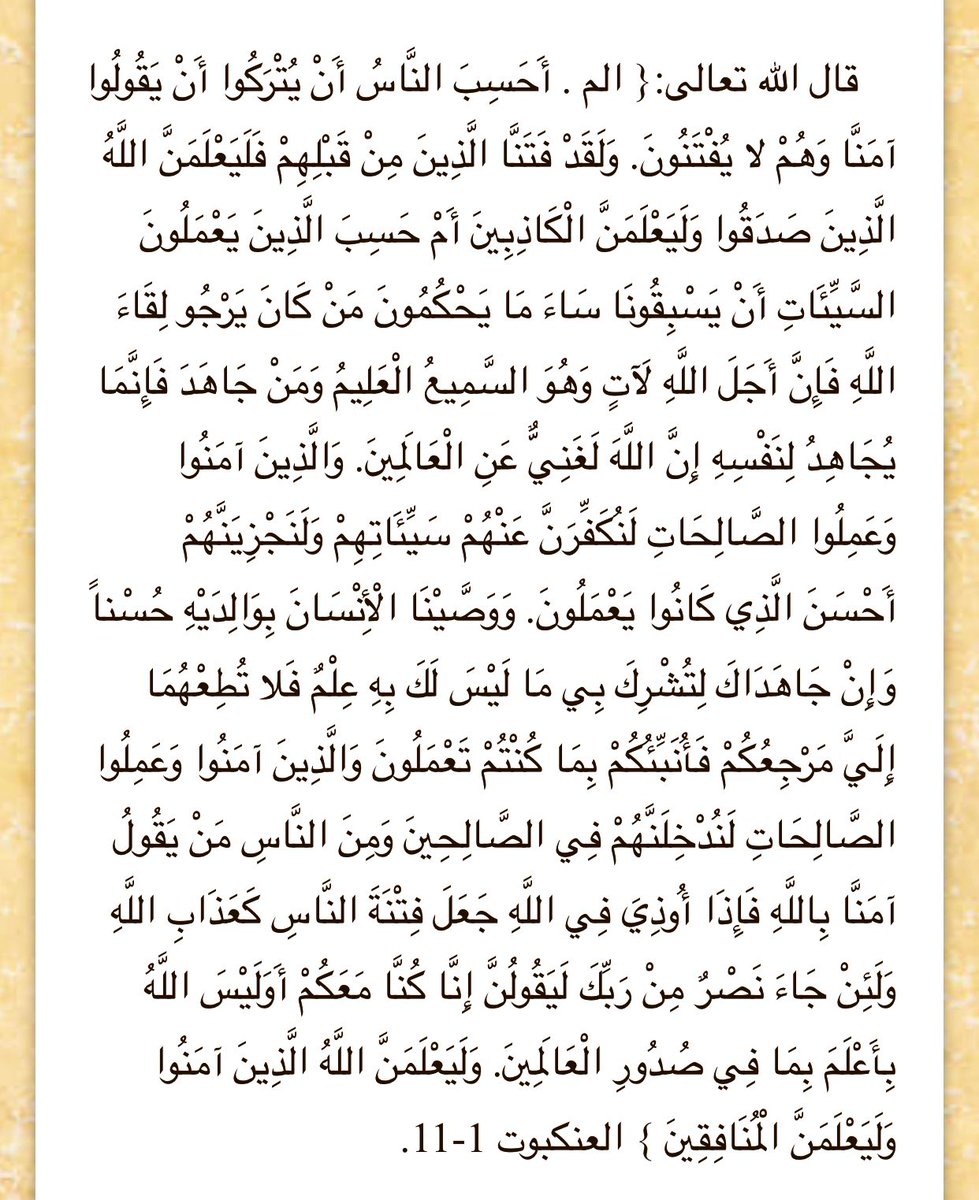 قال الله تعالى:{ الم . أَحَسِبَ النَّاسُ أَنْ يُتْرَكُوا أَنْ يَقُولُوا
آمَنَّا وَهُمْ لا يُفْتَنُونَ. وَلَقَدْ فَتَنَّا الَّذِينَ مِنْ قَبْلِهِمْ فَلَيَعْلَمَنَّ اللَّهُ
الَّذِينَ صَدَقُوا وَلَيَعْلَمَنَّ الْكَاذِبِينَ أَمْ حَسِبَ الَّذِينَ يَعْمَلُونَ
السَّيِّئَاتِ أَنْ يَسْبِقُونَا سَاءَ مَا يَحْكُمُونَ مَنْ كَانَ يَرْجُو لِقَاءَ
اللَّهِ فَإِنَّ أَجَلَ اللَّهِ لَآتٍ وَهُوَ السَّمِيعُ الْعَلِيمُ وَمَنْ جَاهَدَ فَإِنَّمَا
يُجَاهِدُ لِنَفْسِهِ إِنَّ اللَّهَ لَغَنِيٌّ عَنِ الْعَالَمِينَ. وَالَّذِينَ آمَنُوا
وَعَمِلُوا الصَّالِحَاتِ لَنُكَفِّرَنَّ عَنْهُمْ سَيِّئَاتِهِمْ وَلَنَجْزِيَنَّهُمْ
أَحْسَنَ الَّذِي كَانُوا يَعْمَلُونَ. وَوَصَّيْنَا الْأِنْسَانَ بِوَالِدَيْهِ حُسْناً
وَإِنْ جَاهَدَاكَ لِتُشْرِكَ بِي مَا لَيْسَ لَكَ بِهِ عِلْمٌ فَلا تُطِعْهُمَا
إِلَيَّ مَرْجِعُكُمْ فَأُنَبِّئُكُمْ بِمَا كُنْتُمْ تَعْمَلُونَ وَالَّذِينَ آمَنُوا وَعَمِلُوا
الصَّالِحَاتِ لَنُدْخِلَنَّهُمْ فِي الصَّالِحِينَ وَمِنَ النَّاسِ مَنْ يَقُولُ
آمَنَّا بِاللَّهِ فَإِذَا أُوذِيَ فِي اللَّهِ جَعَلَ فِتْنَةَ النَّاسِ كَعَذَابِ اللَّهِ
وَلَئِنْ جَاءَ نَصْرٌ مِنْ رَبِّكَ لَيَقُولُنَّ إِنَّا كُنَّا مَعَكُمْ أَوَلَيْسَ اللَّهُ
بِأَعْلَمَ بِمَا فِي صُدُورِ الْعَالَمِينَ. وَلَيَعْلَمَنَّ اللَّهُ الَّذِينَ آمَنُوا
وَلَيَعْلَمَنَّ الْمُنَافِقِينَ } العنكبوت 1-11.